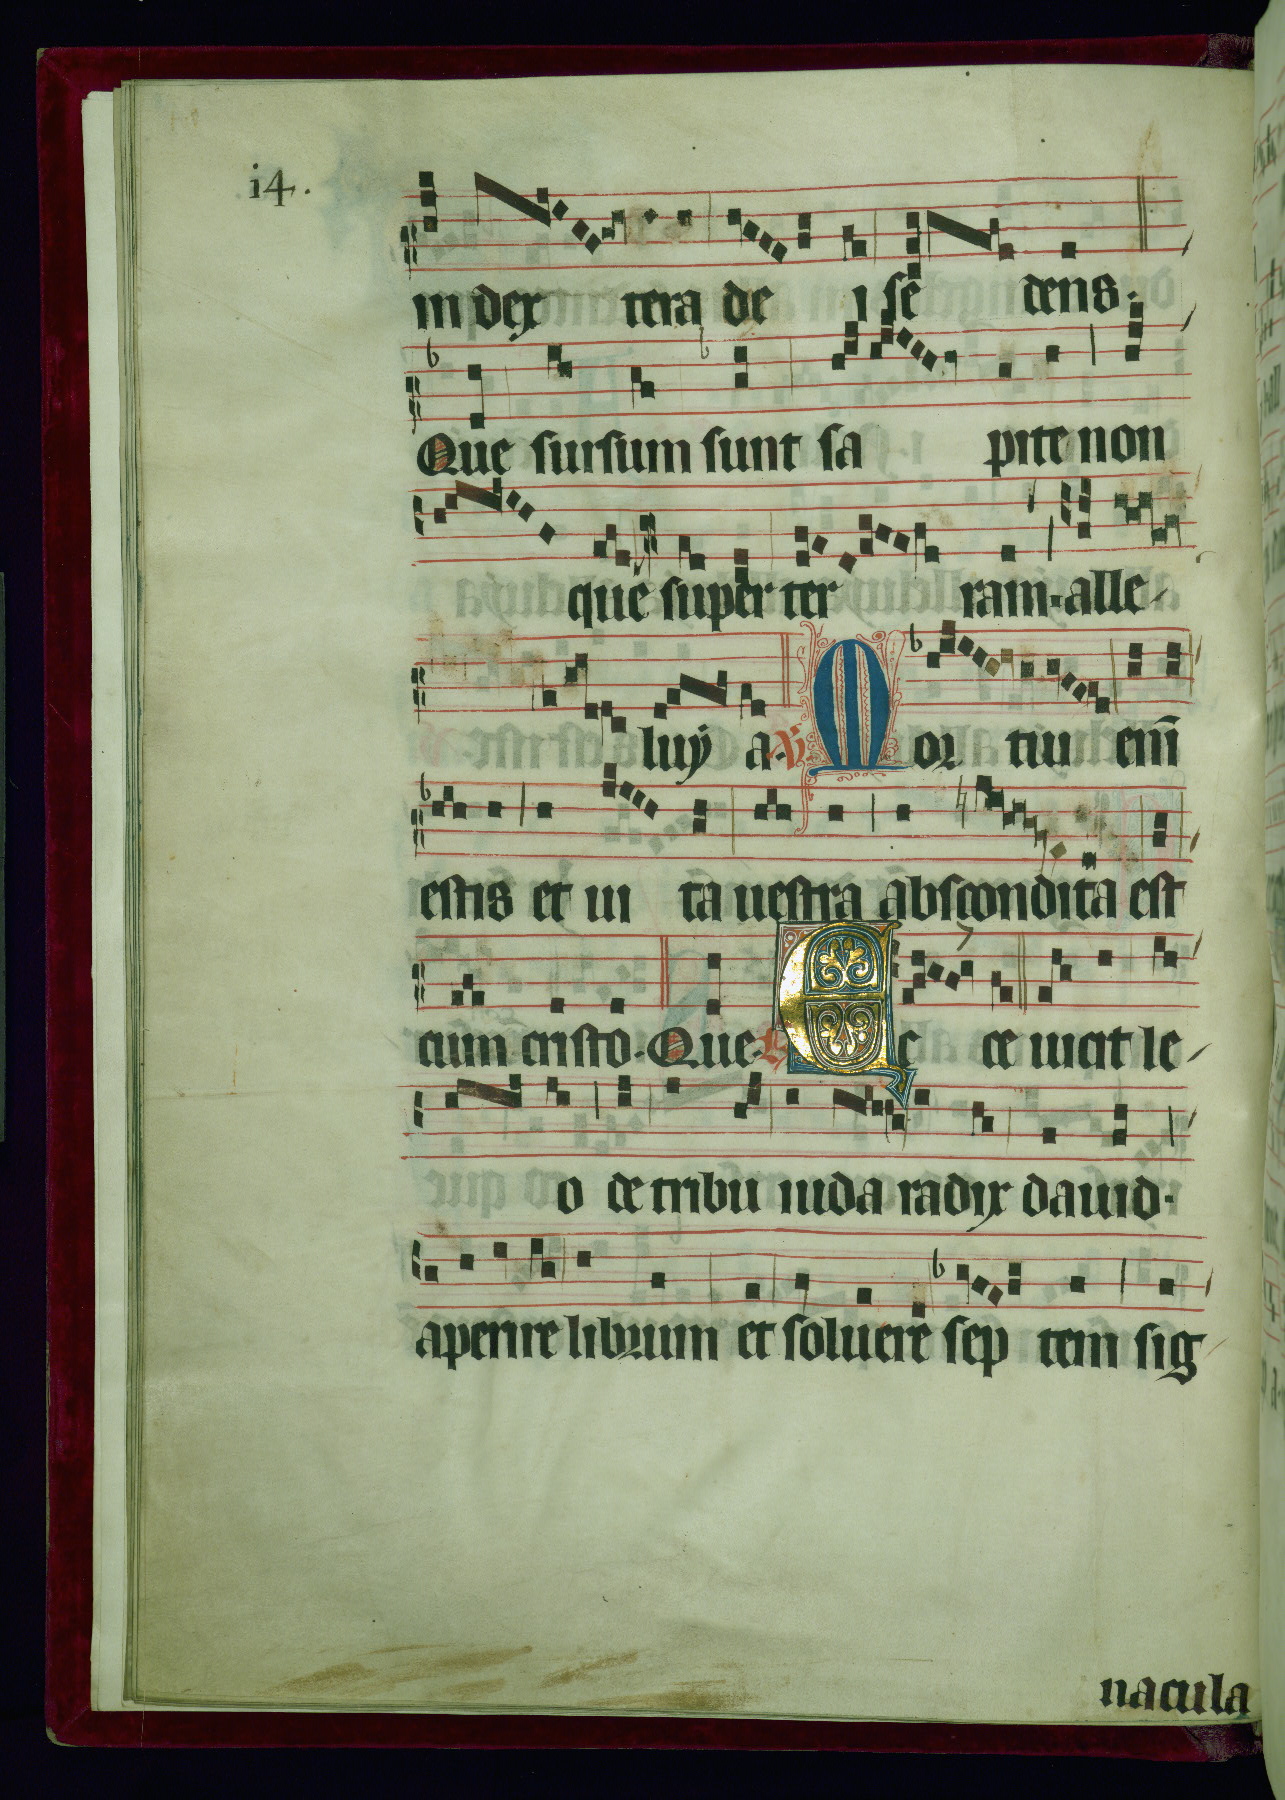 i4.
in dex tera de i se dens.
Que sursum sunt sa pite non
que super ter ram. alle
luÿ a. V. Mor tui enī
estis et ui ta uestra abscondita est
cum cristo. Que. Ec ce uicit le
o de tribu iuda radix dauid.
aperire librum et soluere sep tem sig
nacula